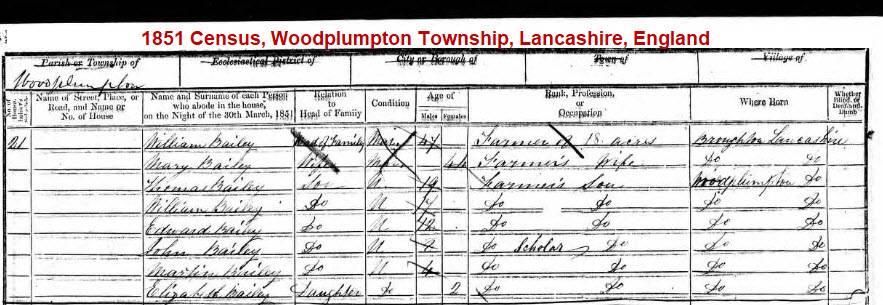 1851 Census, Woodplumpton Township, Lancashire, England
Parish or Township of Ecclesiastical District of City or Borough of Town of Village of
Woodplumpton
Name of Street, Place, or Road, and Name or No. of House
Name and Surname of each Person who abode in the house, on the Night of the 30th March, 1851
Relation to Head of Family
Condition
Age of
Males Females
Rank, Profession, or Occupation
Where Born
Whether Blind, or Deaf-and-Dumb
21 William Bailey Head of Family Mar 47 Farmer of 18 acres Broughton Lancashire
Mary Bailey Wife 44 Farmer's Wife Do Do
Thomas Bailey Son U 19 Farmer's Son Woodplumpton Do
William Bailey Do U Do Do Do Do
Edward Bailey Do U 12 Do Do Do Do
John Bailey Do U 7 Do Scholar Do Do Do
Bailey Do U 4 Do Do Do Do
Elizabeth Bailey Daughter Do 2 Do Do Do Do